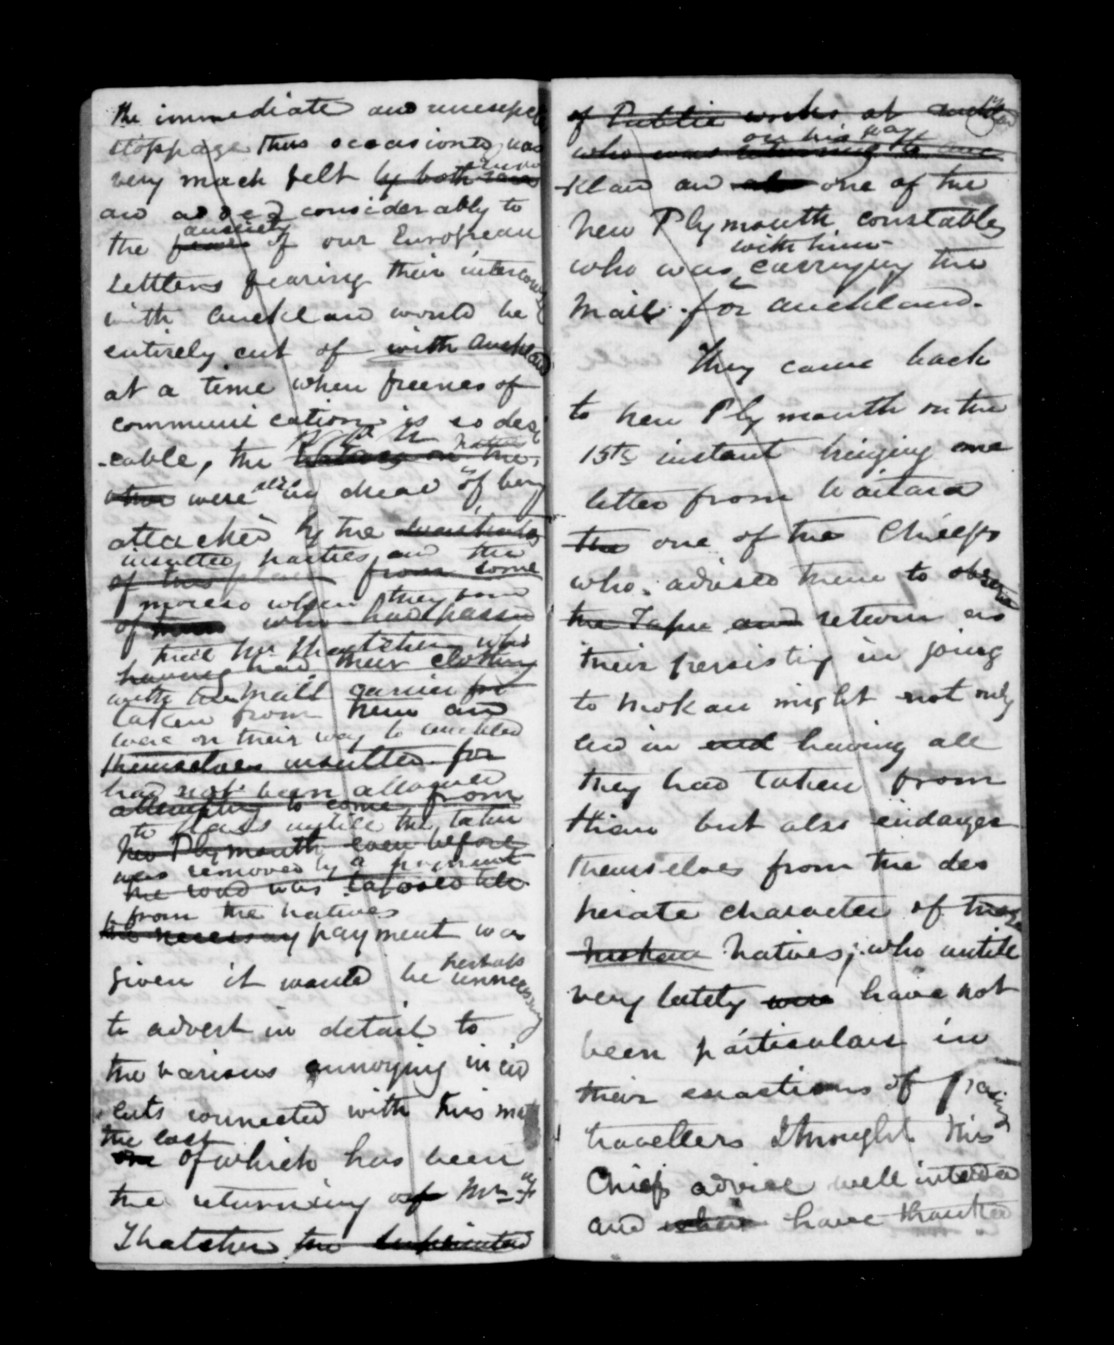 the immediate and unexpec
stoppage thus occasioned, was
very much felt by both
and added considerably to
anxiety
the fears of our European
Settlers fearing their intercourse
with Auckland would be
entirely cut of with Auckland
at a time when freenes of
communication is so desi
cable, the Natives on the
were in dread of being
attacked by the
insulted parties and the
of from some
moreso when they
of who had passed
that Mr Thatcher who
having had their clothing
with the Mail carrier for
taken from him and
were on their way to Auckland
themselves insulted for
had not been allowed
attempting to come from
to pass untill the
New Plymouth even before
was removed by a payment
the road was tapooed till
from the natives
the necessary payment was
perhaps
given it would be unnecessary
to advert in detail to
the various annoying incid
ents connected with this
the last
one of which has been
the returning of Mr F
Thatcher the
of Public works at Auckland
on his way
who was returning to Auc
kland and one of the
New Plymouth constables
with him
who was carrying the
Mail for Auckland.
They came back
to New Plymouth on the
15th instant bringing me
letter from Waitara
the one of the Chiefs
who advised them to observe
the Tapu and return as
their persisting in joing
to Mokau might not only
end in having all
they had taken from
them but also endanger
themselves from the des
perate character of these
Mokau Natives; who untill
very lately were have not
been particular in
their exactions of
travellers I thought this
Chiefs advice well intended
and have thanked